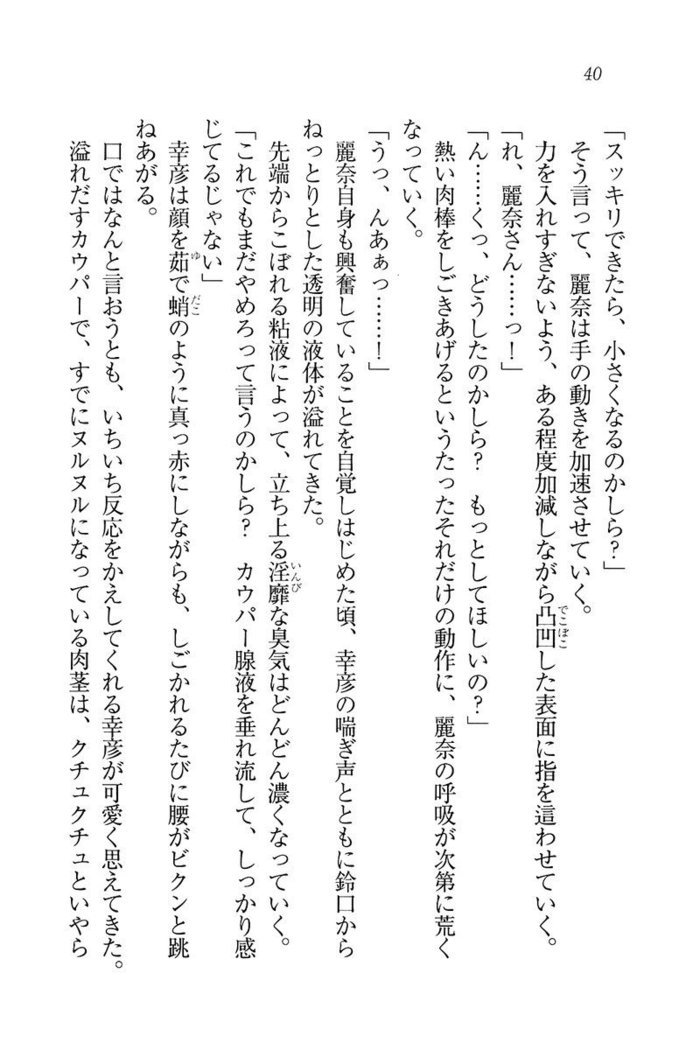 40
「スッキリできたら、小さくなるのかしら？」
そう言って、麗奈は手の動きを加速させていく。
力を入れすぎないよう、ある程度加減しながら凸凹した表面に指を這わせていく。
「れ、麗奈さん……っ！」
「ん……くっ、どうしたのかしら？　もっとしてほしいの？」
熱い肉棒をしごきあげるというたったそれだけの動作に、麗奈の呼吸が次第に荒く
なっていく。
「うっ、んあぁっ……！」
麗奈自身も興奮していることを自覚しはじめた頃、幸彦の喘ぎ声とともに鈴口から
ねっとりとした透明の液体が溢れてきた。
先端からこぼれる粘液によって、立ち上る淫靡な臭気はどんどん濃くなっていく。
「これでもまだやめろって言うのかしら？　カウパー腺液を垂れ流して、しっかり感
じてるじゃない」
幸彦は顔を茹で蛸のように真っ赤にしながらも、しごかれるたびに腰がビクンと跳
ねあがる。
口ではなんと言おうとも、いちいち反応をかえしてくれる幸彦が可愛く思えてきた。
溢れだすカウパーで、すでにヌルヌルになっている肉茎は、クチュクチュといやら